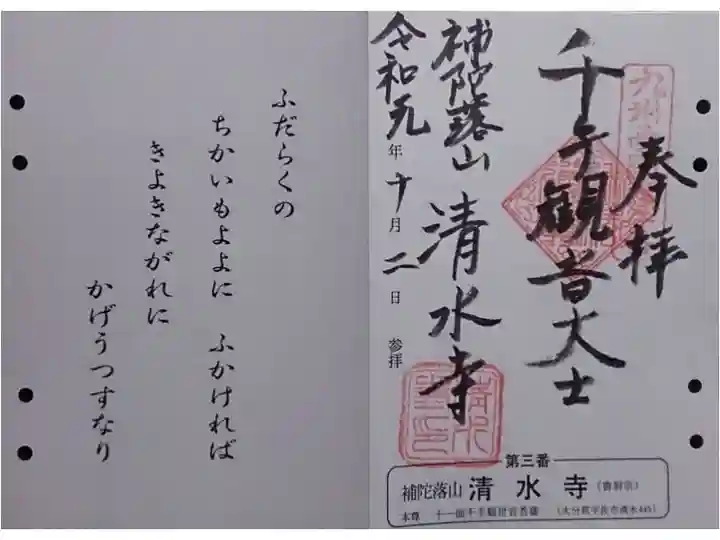 奉拝
千手観音大士
補陀落山 清水寺
令和元年十月二日 参拝
第三番
補陀落山 清水寺(曹洞宗)
本尊 十一面千手観世音菩薩 (大分県宇佐市清水445)
ふだらくの
ちかいもよよに ふかければ
きよきながれに
かげうつすなり